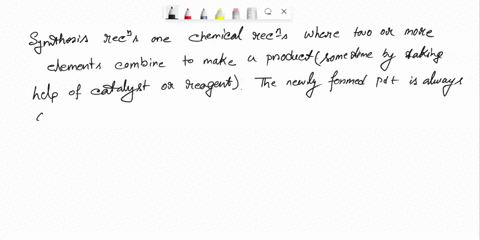 Synthesis recⁿs are chemical recⁿs where two or more
elements combine to make a product (sometime by taking
help of catalyst or reagent). The newly formed pdt is always